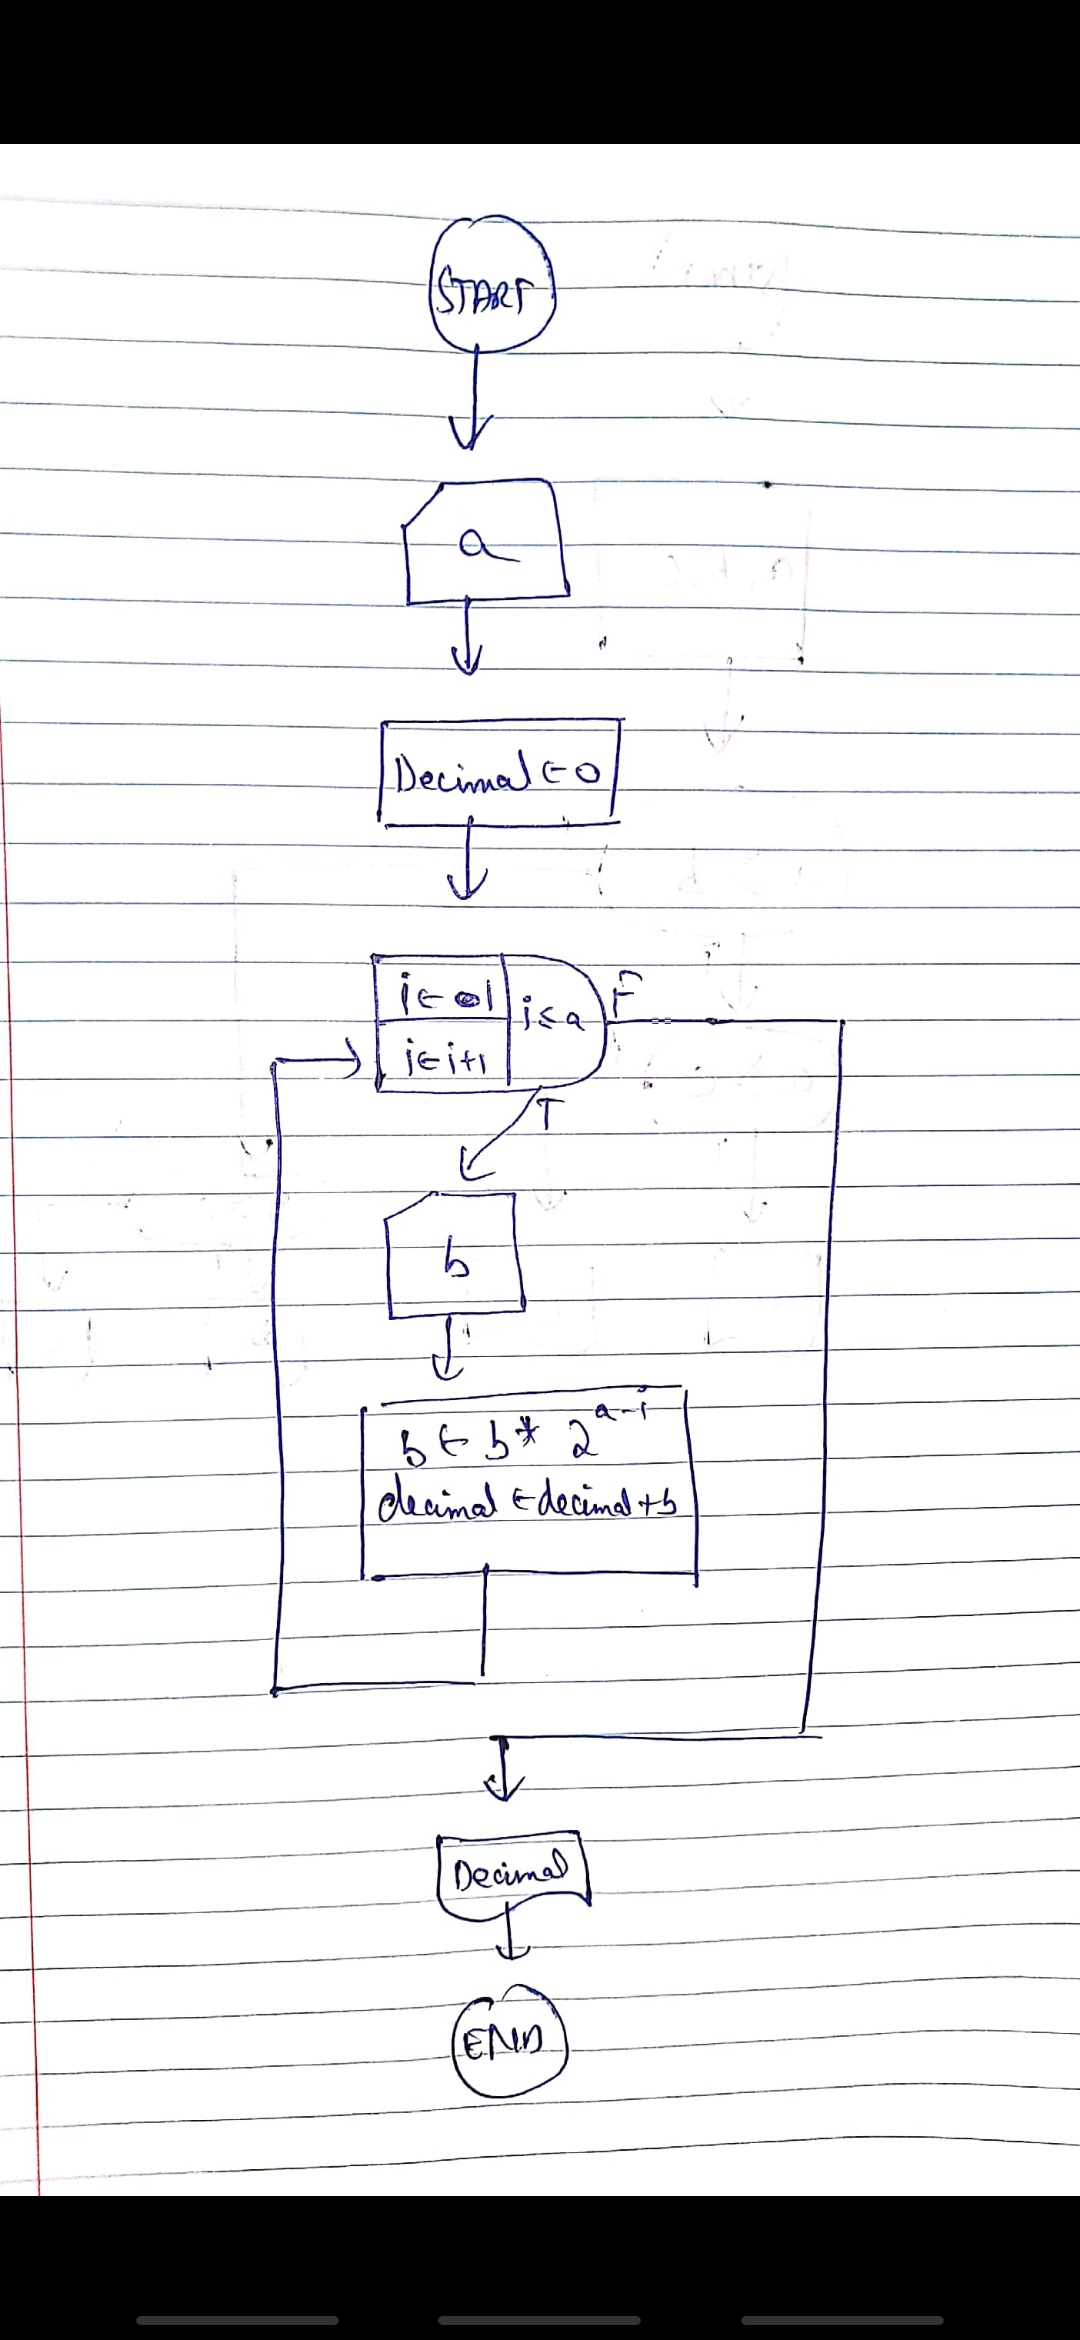 START
a
Decimal ← 0
i ← 1
i ≤ a
F
i ← i+1
T
b
b ← b * 2^a-i
decimal ← decimal + b
Decimal
END